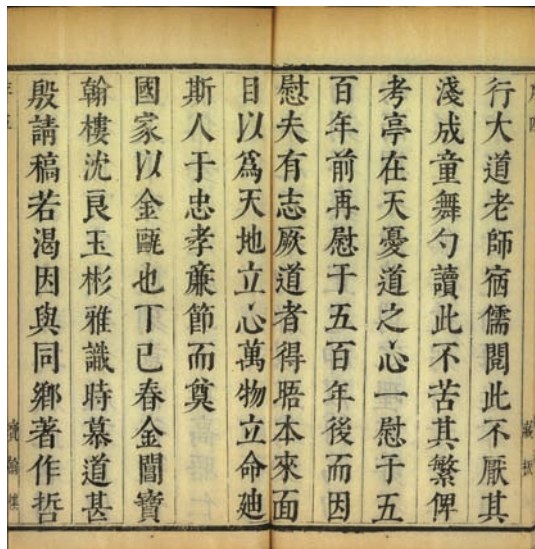 行大道老師宿儒閱此不厭其
淺成童舞勺讀此不苦其繁俾
考亭在天憂道之心一慰于五
百年前再慰于五百年後而因
慰夫有志厥道者得晤本來面
目以爲天地立心萬物立命迆
斯人于忠孝蔗節而奠
國家以金甌也丁巳春金閶寶
翰樓沈良玉彬雅識時慕道甚
殷請稿若渴因與同鄉著作哲
寶翰樓